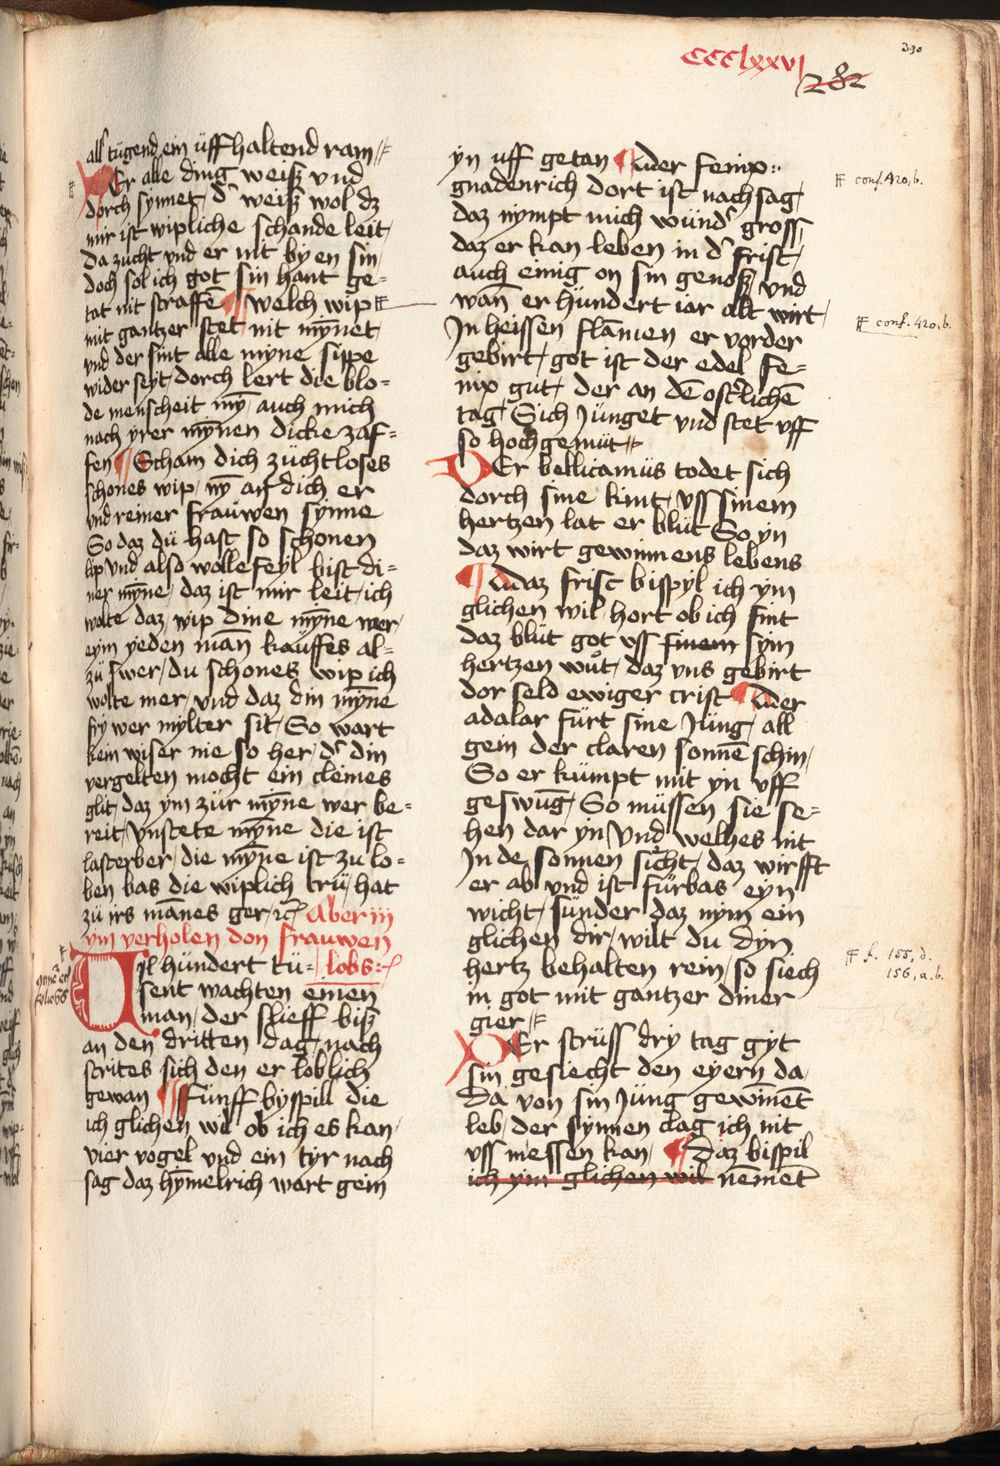 CCClxxvj
282
390
all tugend ein uffhaltend ram
Er alle ding weiß vnd
dorch synnet, d' weiß wol dz
mir ist wipliche schande leit,
da zucht vnd er nit by en sin,
doch sol ich got sin hant ge-
tat nit straffe¯ ¶ welch wip
mit gantzer stet nit my¯net
vnd der sint alle myne sippe
wider seyt, dorch lert die blo-
de menscheit my¯, auch mich
nach yrer my¯nen dicke zaf-
fen ¶ Scham dich zuchtloses
schones wip, ny¯ an dich er
vnd reiner frauwen synne
So daz du hast so schonen
lip vnd also wolle feyl bist di-
ner my¯ne, daz ist mir leit, ich
wolte daz wip dine my¯ne wer,
eym yeden man¯ kauffes al-
zu swer, du schones wip ich
wolte mer, vnd daz din my¯ne
fry wer mylter sit, So wart
kein wiser nie so her, d' din
vergelten mocht ein cleines
glit, daz ym zur my¯ne wer be-
reit, vnstete my¯ne die ist
lasterber, die my¯ne ist zu lo-
ben bas die wiplich tru, hat
zu irs ma¯nes ger, rc Aber iij
ym verholen don frauwen
il hundert tu- lobs
sent wachten einen
man, der slieff biß
an den dritten dag, nach
strites sich den er loblich
gewan ¶ Funff byspill die
ich glichen wil ob ich es kan,
vier vogel vnd ein tyr nach
sag daz hymelrich wart gein
yn uff getan ¶ Der fenix
gnadenrich dort ist nach sag,
daz nympt mich wund' gross,
daz er kan leben in d' frist,
auch einig on sin genoß, vnd
wan¯ er hundert iar alt wirt,
In heissen fla¯men er vorder
gebirt, got ist der edel fe-
nix gut, der an de¯ ost'liche¯
tag, Sich Junget vnd stet uff
so hochgemut
Er bellicanus todet sich
dorch sine kint, vss sinem
hertzen lat er blut So yn
daz wirt gewinnens lebens
¶ Daz frisc bispyl ich ym
glichen wil, hort ob ich sint
daz blut got vss sinem sym
hertzen wut, daz vns gebirt
dor seld ewiger crist ¶ Der
adalar furt sine Jung, all
gein der claren sonne¯ schin,
So er kumpt mit yn uff
geswu¯g, So mussen sie se-
hen dar yn Vnd welhes nit
In de sonnen sicht, daz wirfft
er ab vnd ist furbas eyn
wicht, sunder daz nym ein
glichen dir, wilt du dyn
hertz behalten rein, so siech
in got mit gantzer diner
gier
Er struss dry tag gyt
sin gesiecht den eyern da,
da von sin Jung gewi¯ne¯t
leb, der synnen clag ich nit
vss messen kan, ¶ Daz bispil
ich ym glichen wil ne¯me¯t
conf. 420, b.
conf. 420, b.
f. 155, d.
156, a. b.